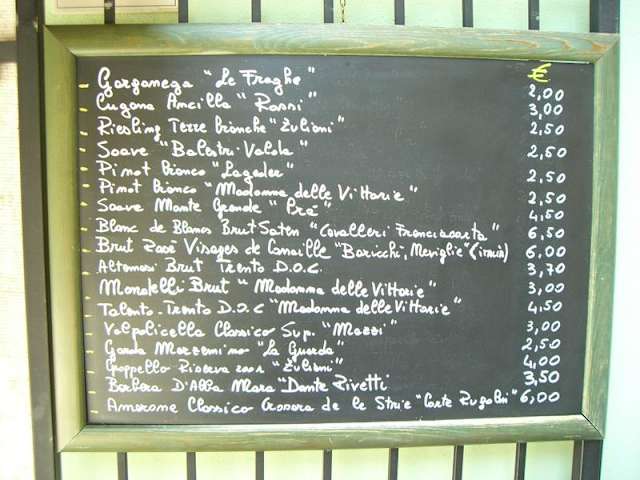 €
Garganega "Le Fraghe" 2,00
Lugana Ancilla "Rossi" 3,00
Riesling Terre bianche "Zulioni" 2,50
Soave "Balestri Valda" 2,50
Pinot bianco "Lageder" 2,50
Pinot bianco "Madonna delle Vittorie" 2,50
Soave Monte Grande "Prà" 4,50
Blanc de Blancs Brut Saten "Cavalleri Franciacorta" 6,50
Brut Rosè Visages de Canaille "Baricchi, Neviglie" 6,00
Altemasi Brut Trento D.O.C. 3,70
Brut "Madonna delle Vittorie" 3,00
Talento Trento D.O.C "Madonna delle Vittorie" 4,50
Valpolicella Classico Sup. "Mazzi" 3,00
Garda Marzemino "La Guarda" 2,50
Groppello Riserva "Zulioni" 4,00
Barbera D'Alba Mara "Dante Rivetti 3,50
Amarone Classico Corte Rugolin" 6,00